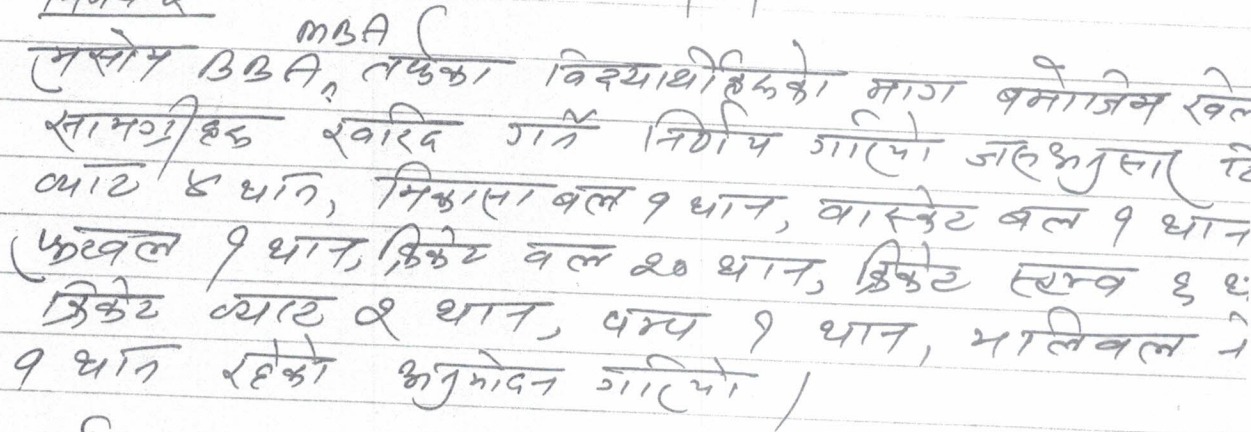 MBA
यसोम BBA, तर्फका विद्यार्थीहरुको माग बमोजिम खेल
सामग्रीहरु खरिद गर्ने निर्णय गरियो जसअनुसार टि
ब्याट ४ थान, मिकासा बल १ थान, वास्केट बल १ थान
फुटवल १ थान, क्रिकेट वल २० थान, क्रिकेट स्टम्व ६ थ
क्रिकेट व्याट २ थान, पम्प १ थान, भलिवल ने
१ थान रहेको अनुमोदन गरियो।